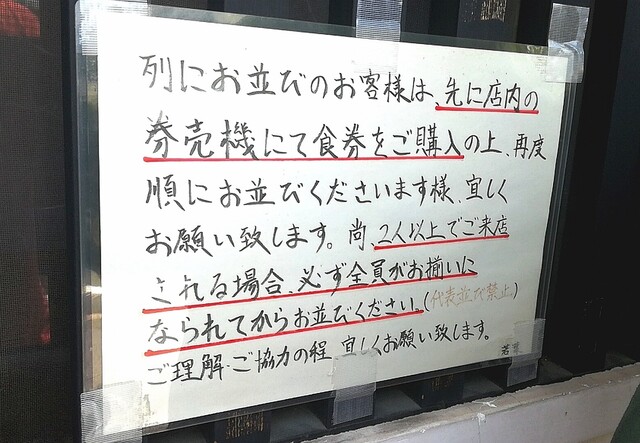 列にお並びのお客様は、先に店内の
券売機にて食券をご購入の上、再度
順にお並びくださいます様、宜しく
お願い致します。尚、2人以上でご来店
される場合、必ず全員がお揃いに
なられてからお並びください。(代表並び禁止)
ご理解・ご協力の程、宜しくお願い致します。